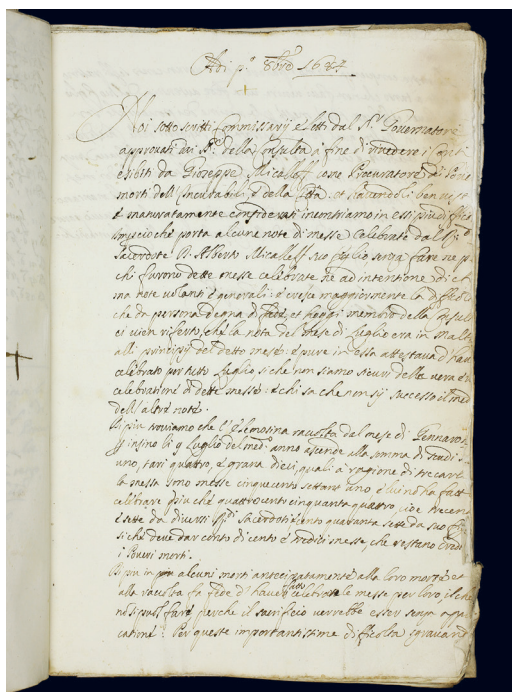 Adi p.º 8bre 1684
Noi sotto scritti Commissarij eletti dal S.r Governatore
approvati dai SS.ri della Consulta à fine di rivedere i Conti
esibiti da Gioseppe Micalleff come Procuratore di Poveri
morti dell'Incurabili, è della et havendoli ben
è maturatamente considerati incontriamo in essi più
imperciochè porta alcune note di messe Celebrate dal
Sacerdote D. Alberto Micalleff suo figlio senza fare ne p
chi furono dette messe celebrate ne ad intentione di
ma note volanti è generali: è cresce maggiormente la difficol
che da persona degna di fede, et hoggi membro della Consul
ci vien riferto, che la nota del mese di luglio era in Malta
alli principij del detto mese: è pure in essa attestava d'hav
celebrato per tutto luglio si che non siamo sicuri della vera
celebratione di dette messe: è chi sa che non sij successo il med
dell'altre note.
Di più troviamo che l'elemosina racolta dal mese di Gennaro
insino li 9 luglio del med.º anno ascende alla somma di scudi
uno, tari quattro, è grana dieci, quali à ragione di tre carl
la messa sono messe cinquecento settant'uno, è lui nò ha fatt
celebrare più che quattro cento cinquanta quattro cioè trecen
è sette da diversi Sacerdoti è cento quaranta sette da suo fig
si chè deve dar conto di cento è tredici messe, che restano
i Poveri morti.
Di più in più alcuni morti antecipatamente alla loro morte et
alla racolta fà fede d'haver fatto celebrare le messe per loro il che
nò si può fare perche il sacrificio verrebbe esser senza
catione: Per queste importantissime difficoltà sgravand